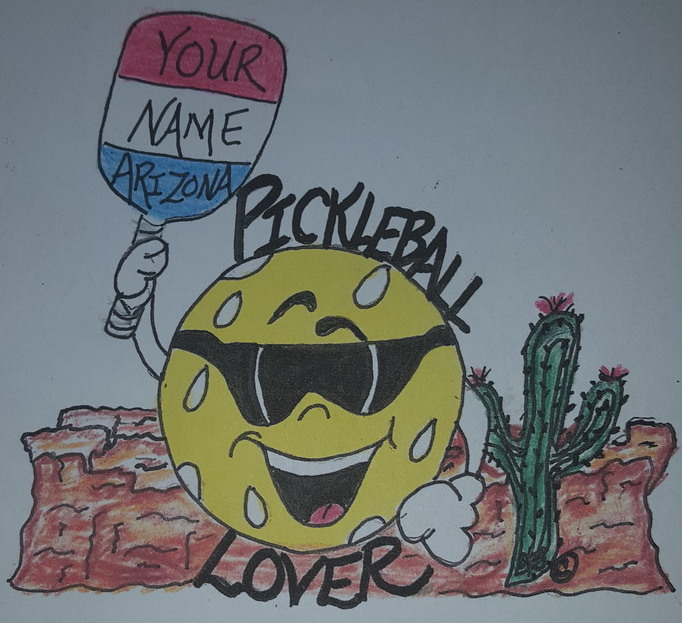 YOUR
NAME
ARIZONA
PICKLEBALL
LOVER
©